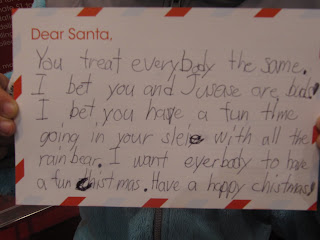 Dear Santa,
You treat everybody the same.
I bet you and Jusease are buds.
I bet you have a fun time
going in your sleie with all the
rainbear. I want eyerbody to have
a fun chistmas. Have a happy chistmas!